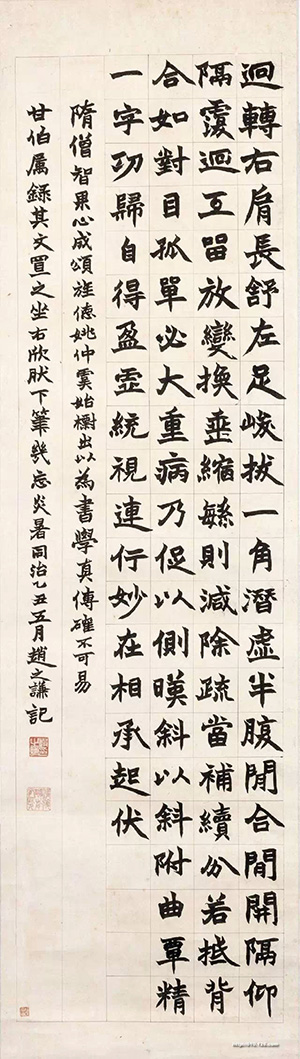 迴轉右肩長舒左足峻拔一角潛虛半腹閒合閒開隔仰
隔覆迴互畱放變換垂縮緐則減除疏當補續分若抵背
合如對目孤單必大重病乃促以側暎斜以斜附曲覃精
一字功歸自得盈虛統視連行妙在相承起伏
隋僧智果心成頌旌德姚仲虞始出以為書學真傳確不可易
甘伯屬錄其文置之坐右欣肰下筆幾忘炎暑同治乙丑五月趙之謙記